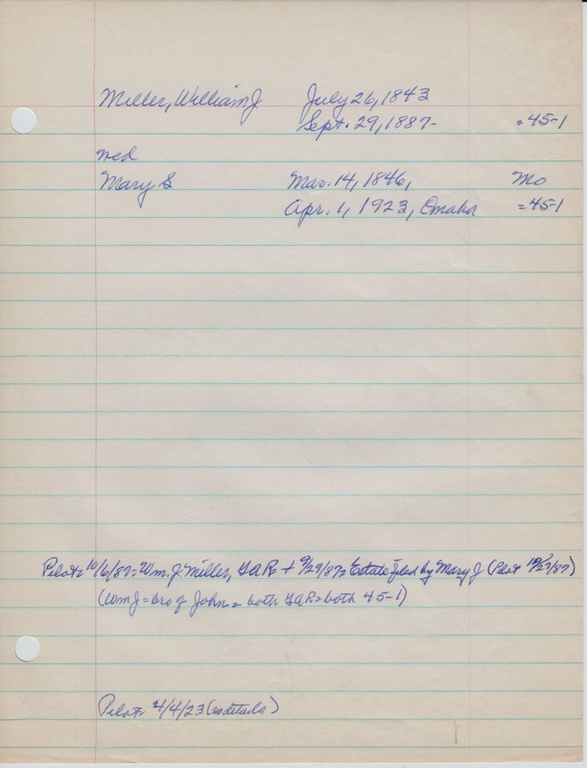 Miller, William J July 26, 1843
Sept. 29, 1887- =45-1
med
Mary S Mar. 14, 1846, Mo
Apr. 1, 1923, Omaha =45-1
Pilot= 10/6/87= Wm. J. Miller, GAR= + 9/29/87= Estate filed by Mary J (Pilot 10/27/87)
(Wm J = bro of John = both GAR = both 45-1)
Pilot= 4/4/23 (no details)